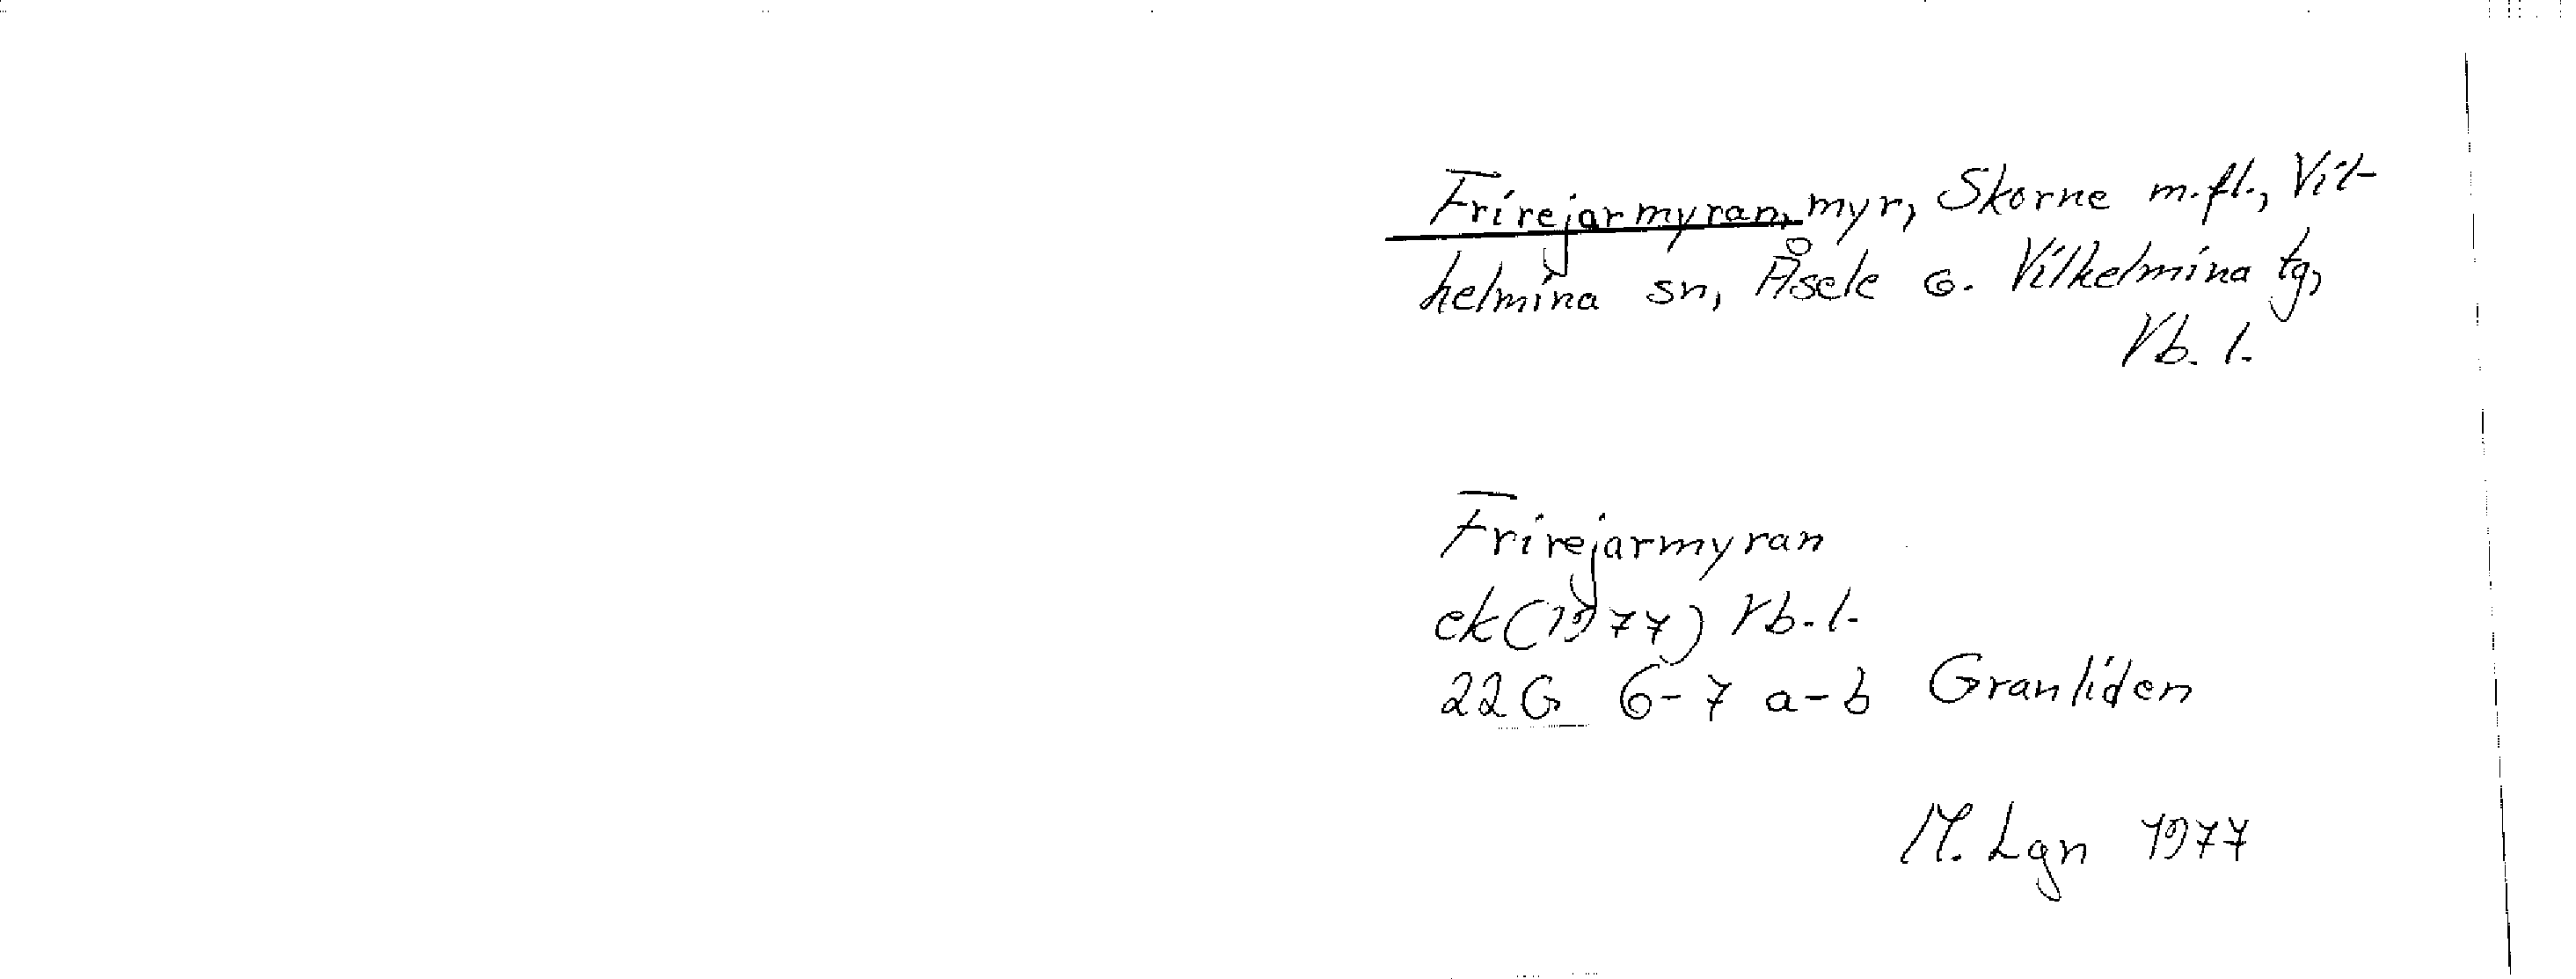 Frirejarmyran, myr, Skorne m.fl., Vil-
helmina sn, Åsele o. Vilhelmina tg,
Vb. l.
Frirejarmyran
ek (1977) Vb. l.
22 G 6-7 a-b Granliden
M. Lgn 1977